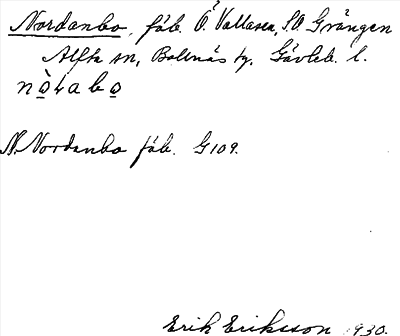 Nordanbo, fäb. Ö. Vallasen, S.O. Grängen
Alfta sn, Bollnäs tg. Gävleb. l.
N. Nordanbo fäb. G109.
Erik Eriksson 1930.